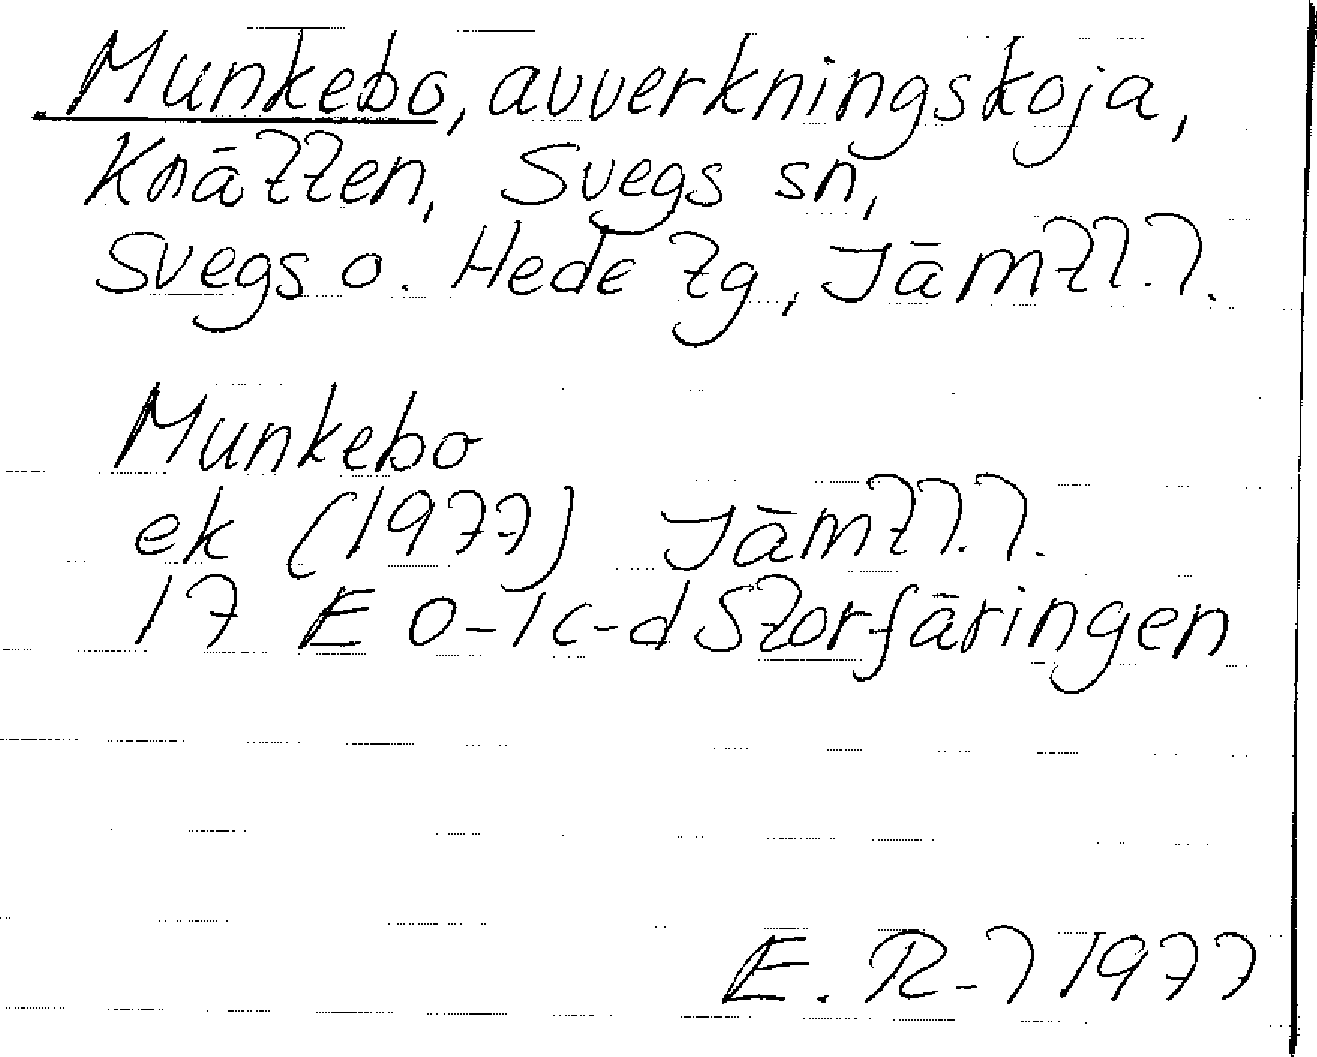 Munkebo, avverkningskoja,
Knätten, Svegs sn,
Svegs o. Hede tg, Jämtl.l.
Munkebo
ek (1977) Jämtl.l.
17 E 0-1c-d Storfäringen
E. R-l 1977